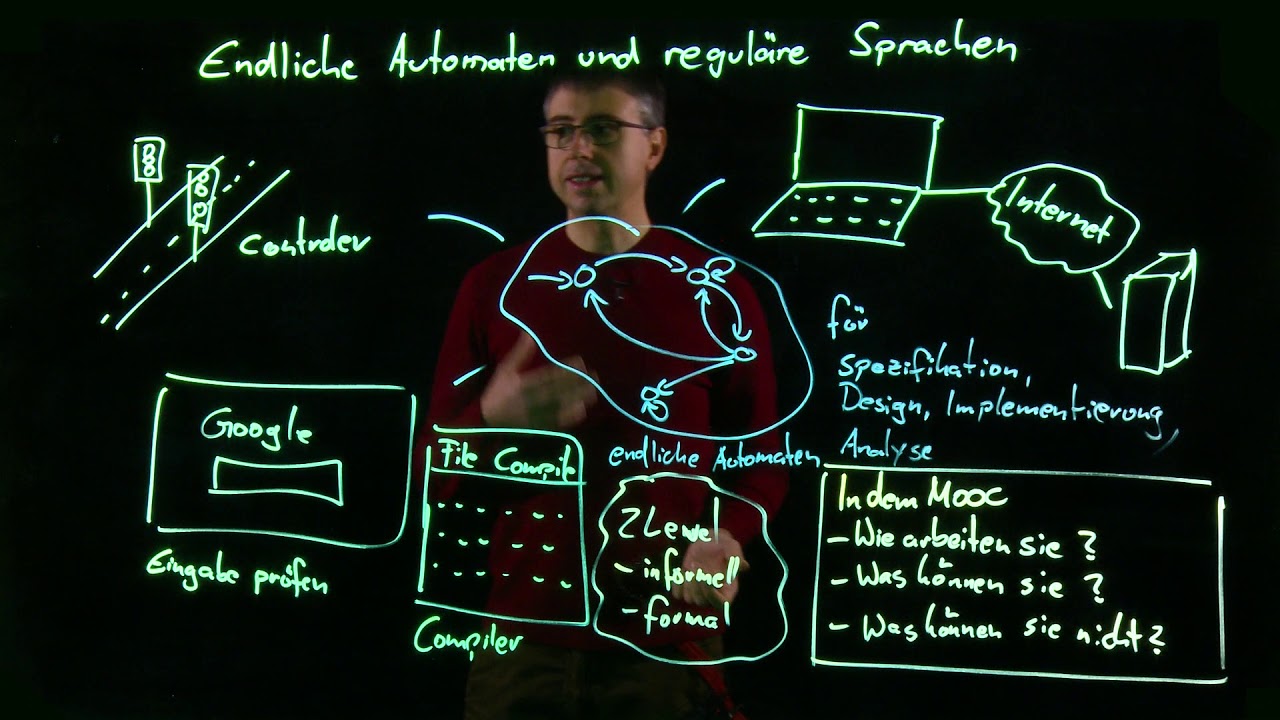 Endliche Automaten und reguläre Sprachen
Controller
Internet
für
Spezifikation,
Design, Implementierung,
Analyse
Google
Eingabe prüfen
File Compile
Compiler
endliche Automaten
2 Level
- informell
- formal
In dem MOOC
- Wie arbeiten sie ?
- Was können sie ?
- Was können sie nicht ?